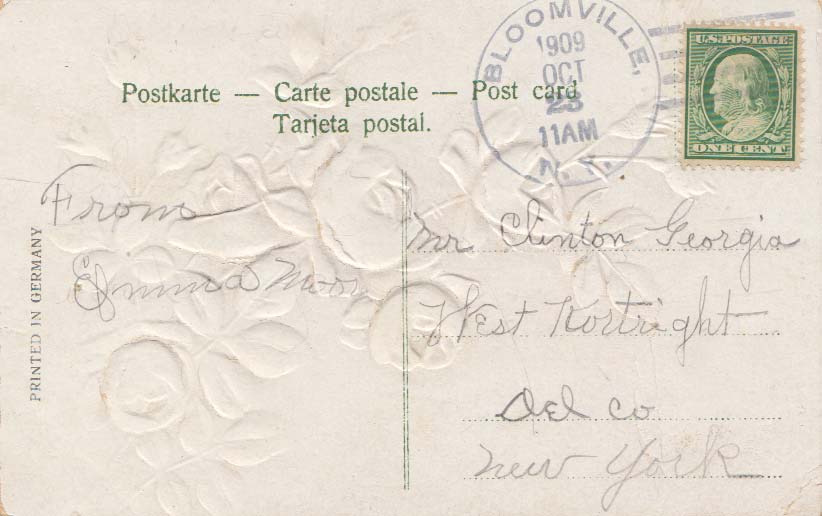 BLOOMVILLE,
1909
OCT
23
11AM
N. Y.
U.S. POSTAGE
ONE CENT
Postkarte — Carte postale — Post card
Tarjeta postal.
From
Emma Moor
PRINTED IN GERMANY
Mr Clinton Georgia
West Kortright
Del co
New York